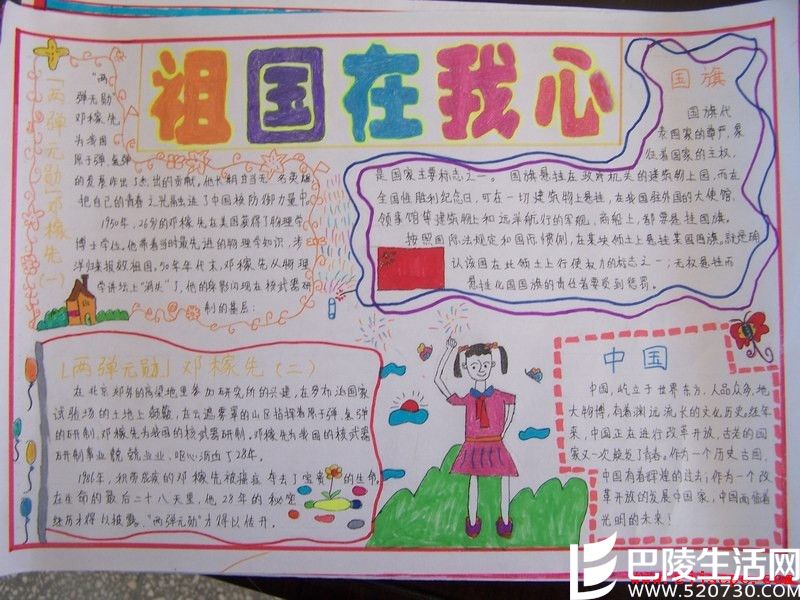 祖国在我心
「两弹元勋」邓稼先(一)
"两
弹元勋"
邓稼先
为我国
原子弹、氢弹
的发展作出了杰出的贡献,他长期甘当无名英雄,
把自己的青春之光融进了中国核防御力量中。
1950年,26岁的邓稼先在美国获得了物理学
博士学位。他带着当时最先进的物理学知识,涉
洋归来报效祖国。50年年代末,邓稼先从物理
学讲坛上"消失"了,他的身影闪现在核武器研
制的基层;
国旗
国旗代
表国家的尊严,象
征着国家的主权,
是国家主要标志之一。国旗悬挂在政府机关的建筑物上国,而在
全国性胜利纪念日,可在一切建筑物上悬挂,在我国驻外国的大使馆、
领事馆等建筑物上和远洋航行的军舰、商船上,都要悬挂国旗。
按照国际法规定和国际惯例,在某块领土上悬挂某国国旗,就是确
认该国在此领土上行使权力的标志之一;无权悬挂而
悬挂他国国旗的责任者要受到惩罚。
「两弹元勋」邓稼先(二)
在北京郊外的高粱地里参加研究所的兴建,在罗布泊国家
试验场的土地上颠簸,在云遮雾罩的山区指挥着原子弹、氢弹
的研制,邓稼先为我国的核武器研制。邓稼先为我国的核武器
研制事业兢兢业业,呕心沥血了28年。
1986年,积劳成疾的邓稼先被癌症夺去了宝贵的生命,
在生命的最后二十八天里,他28年的秘密
经历才得以披露、"两弹元勋"才得以传开。
中国
中国,屹立于世界东方,人品众多,地
大物博,有着渊远流长的文化历史。近年
来,中国正在进行改革开放,古老的国
家又一次焕发了青春。作为一个历史古国,
中国有着辉煌的过去;作为一个改
革开放的发展中国家,中国面临着
光明的未来!
巴陵生活网
WWW.520730.COM